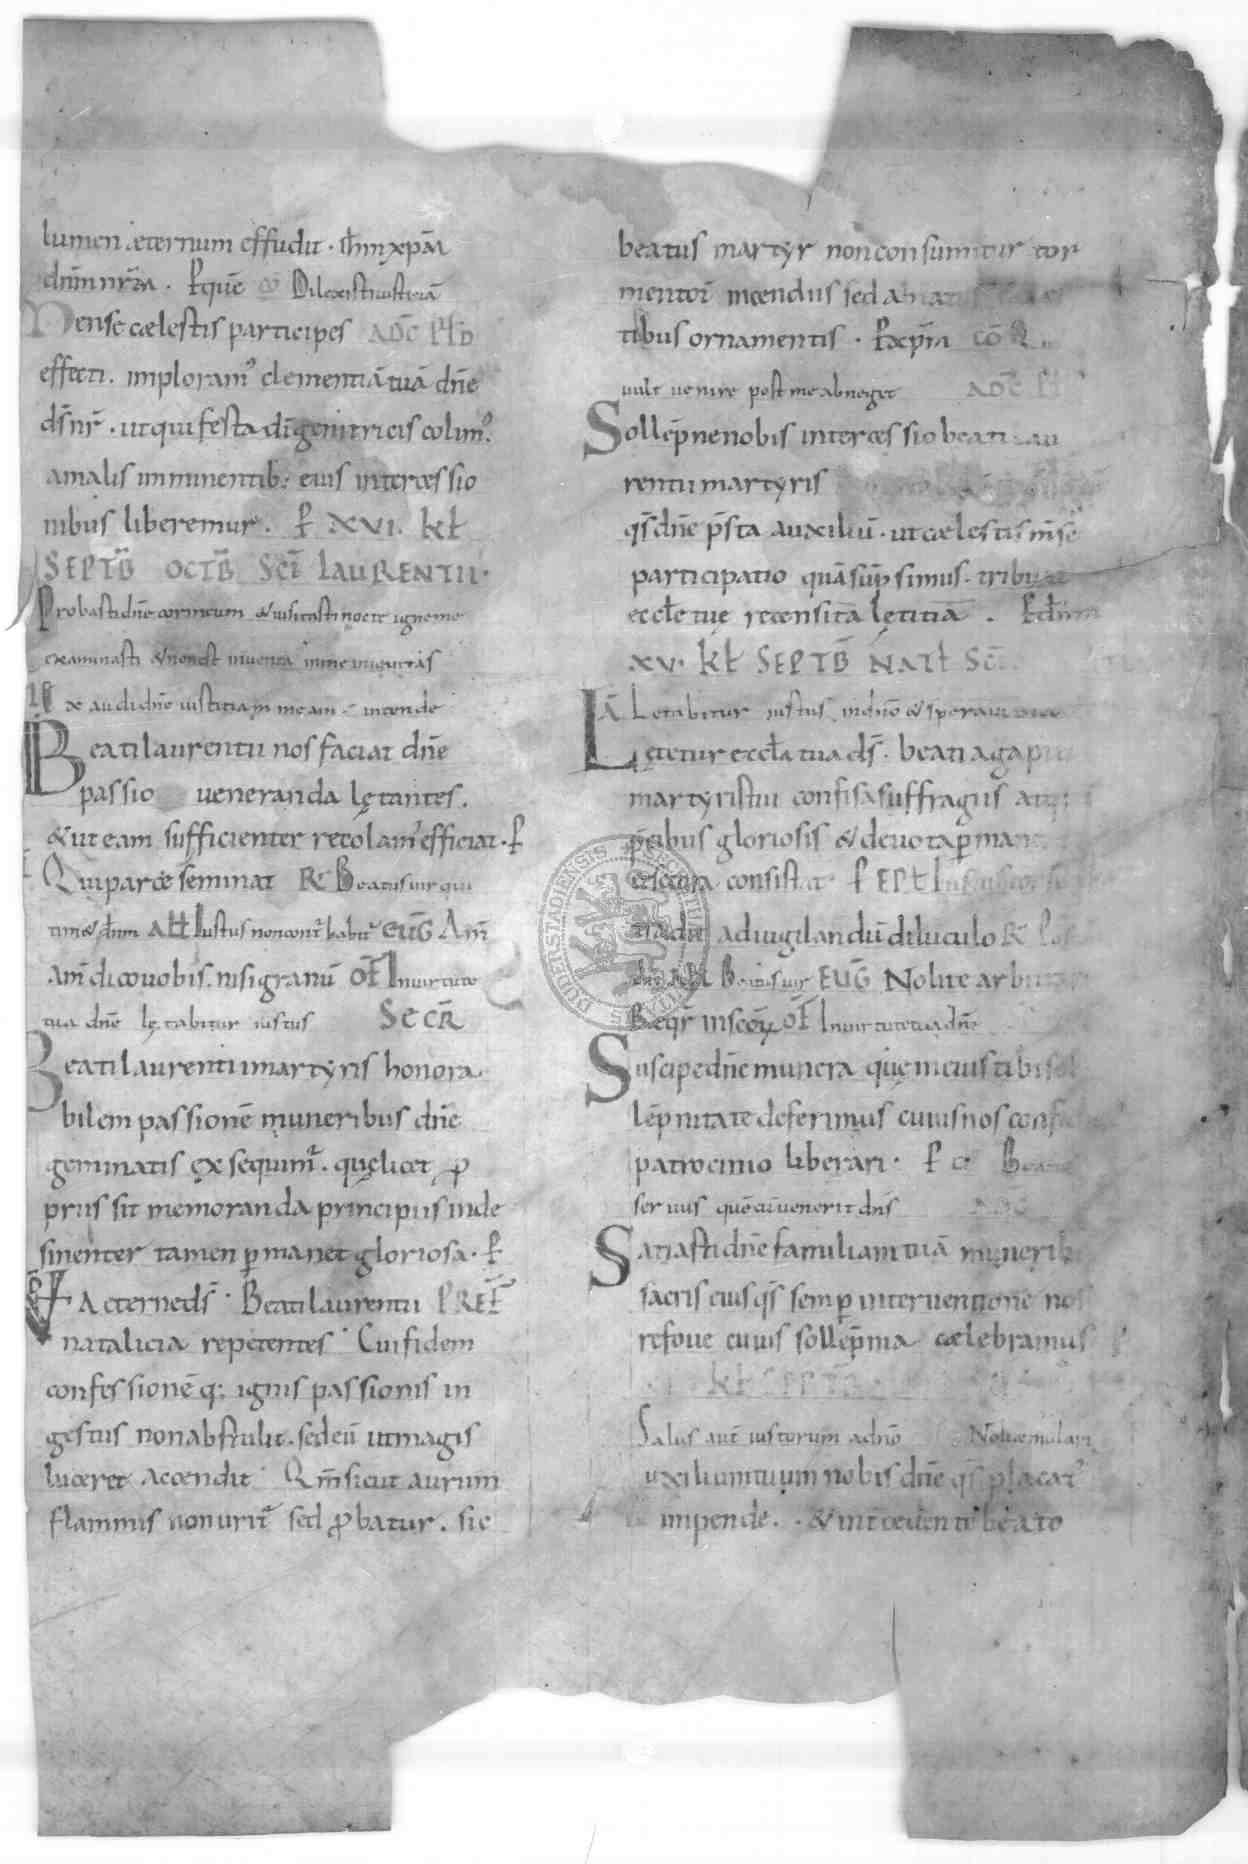 lumen æternum effudit · ih̄m xp̄m
dn̄m nr̄m. P̲ quē co᷑ Dilexisti iustitiā
Mense cælestis participes AD C̄ PŁD
effecti. imploram᷒ clementiā tuā dn̄e
ds̄ nr̄ · ut qui festa dī genitricis colim᷒.
a malis imminentib; eius intercessio
nibus liberemur. P̲ XVI. KŁ
SEPTB̄ OCTB̄ SCĪ LAURENTII ·
Probasti dn̄e cor meum & uisitasti nocte igne me
examinasti & non est inuenta in me iniquitas
Exaudi dn̄e iustitiam meam intende
Beati laurentii nos faciat dn̄e
passio ueneranda lętantes.
& ut eam sufficienter recolam᷒ efficiat · P̲
Qui parce seminat R̄ Beatus uir qui
timet dn̄m ALŁ Iustus non cont᷑babit᷑ EUG̅ Am̄
am̄ dico uobis. nisi granū OF̄ In uirtute
tua dn̄e lętabitur iustus SECR̄
Beati laurentii martyris honora
bilem passionē muneribus dn̄e
geminatis exsequim᷑. quę licet ꝓ
priis sit memoranda principiis inde
sinenter tamen ꝑmanet gloriosa · P̲
V̅D̅ Aeterne ds̄ · Beati laurentii PREF̄
natalicia repetentes · Cui fidem
confessionēq; ignis passionis in
gestus non abstulit. sed eū ut magis
luceret accendit · Qm̄ sicut aurum
flammis non urit᷑ sed ꝓbatur. sic
beatus martyr non consumitur tor
mentor̄ incendiis sed
tibus ornamentis · P̲ xp̄m CŌ Q
uult uenire post me abneget AD C̄
Sollēpne nobis intercessio beati lau
rentii martyris
qs̄ dn̄e p̄sta auxiliū · ut cælestis m̄se
participatio quā sūpsimus. tribuat
eccłe tuę recensitā lętitiā. P̲ dn̄m
XV · KŁ SEPTB̄ NATŁ SCĪ
AN̄ Letabitur iustus in dn̄o & sperauit
Lętetur eccła tua ds̄ · beati agapiti
martyris tui confisa suffragiis atq;
p̄cibus gloriosis & deuota ꝑmaneat
& secura consistat · P̲ EPŁ
ad te ad iugilandū diluculo R̄
ALŁ Beatus uir EUG̅ Nolite arbitrari
Req̄r in scorū OF̄ In uirtute tua dn̄e
Suscipe dn̄e munera quę in eius tibi sol
lēpnitate deferimus cuius nos confidimus
patrocinio liberari · P̲ c᷑ Beatus
seruus quē cū uenerit dn̄s AD C̄
Satiasti dn̄e familiam tuā munerib;
sacris eius qs̄ semꝑ interuentione nos
refoue cuius sollēpnia cælebramus
KŁ SEPTB̄
Salus aut̄ iustorum a dn̄o Noli æmulari
uxilium tuum nobis dn̄e qs̄ placat᷒
impende. · & int̄cedente beato